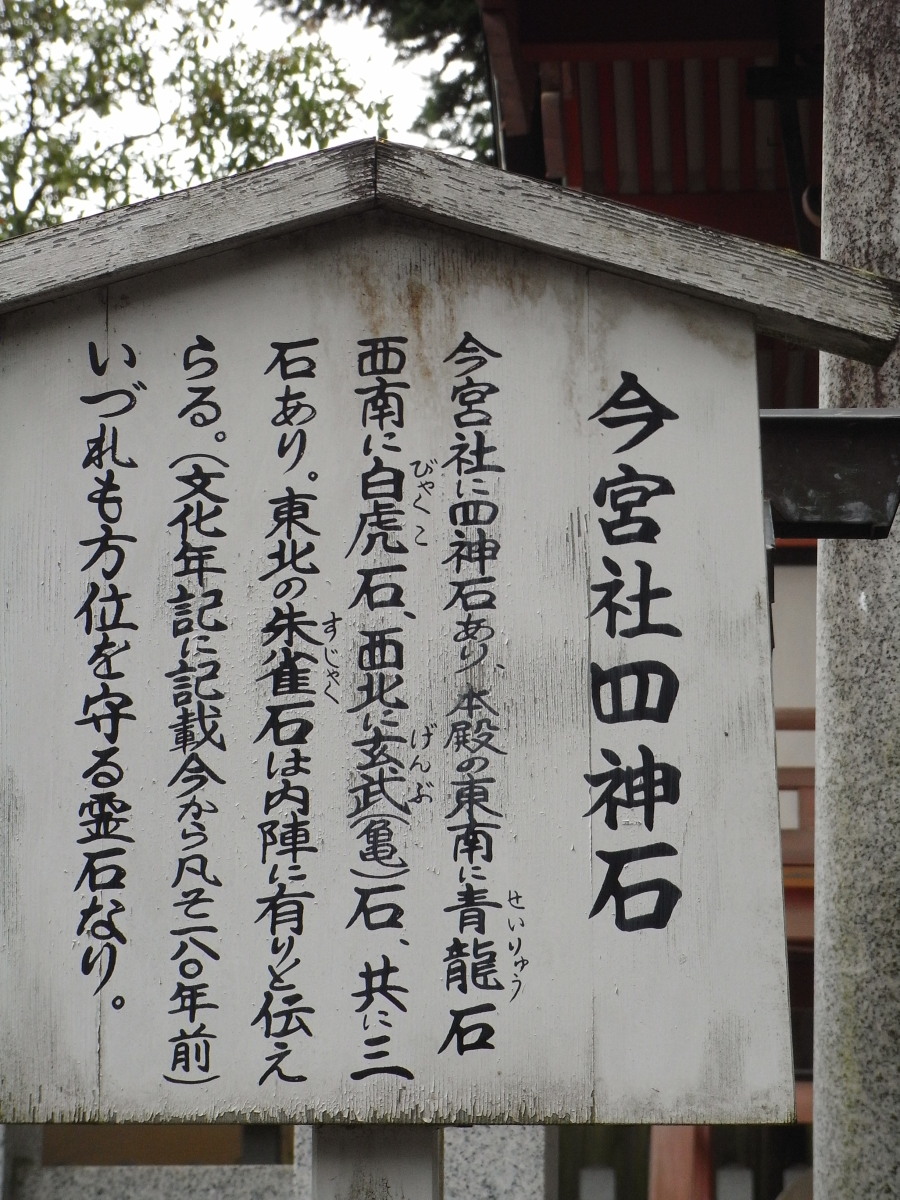 今宮社四神石
今宮社に四神石あり、本殿の東南に青龍石
せいりゅう
西南に白虎石、西北に玄武(亀)石、共に三
びゃくこ
げんぶ
石あり。東北の朱雀石は内陣に有りと伝え
すじゃく
らる。(文化年記に記載今から凡そ二八〇年前)
いづれも方位を守る霊石なり。